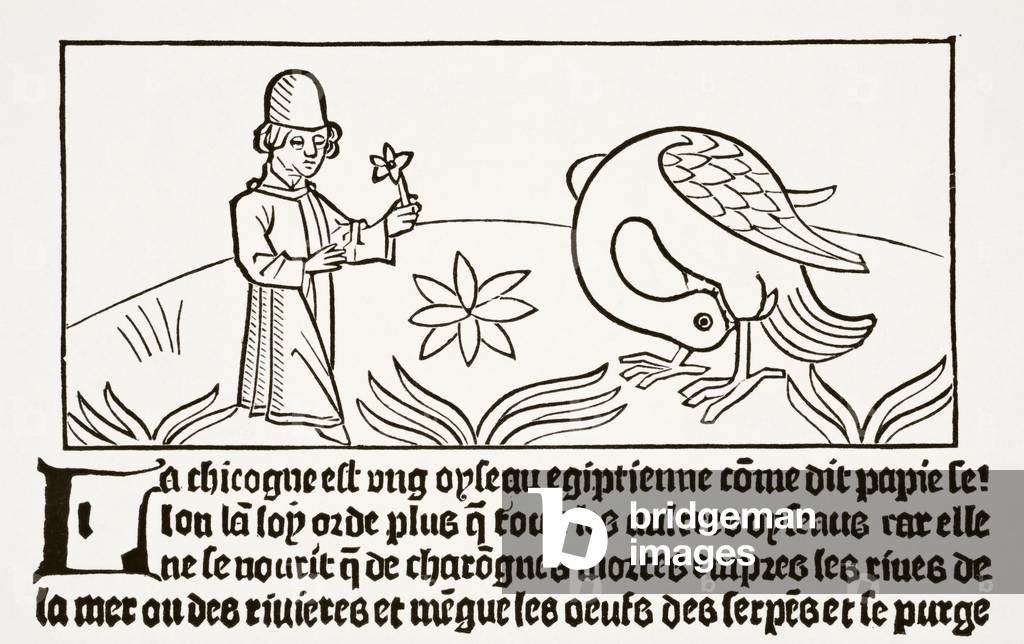 La chicogne est vng oyseau egiptienne cõme dit papie se!
lon lã soy orde plus q̃ tous les oyseaus car elle
ne se nourit q̃ de charõgnes mortes empres les riues de
la mer ou des riuieres et mẽgue les oeufs des serpẽs et se purge
b bridgeman
images